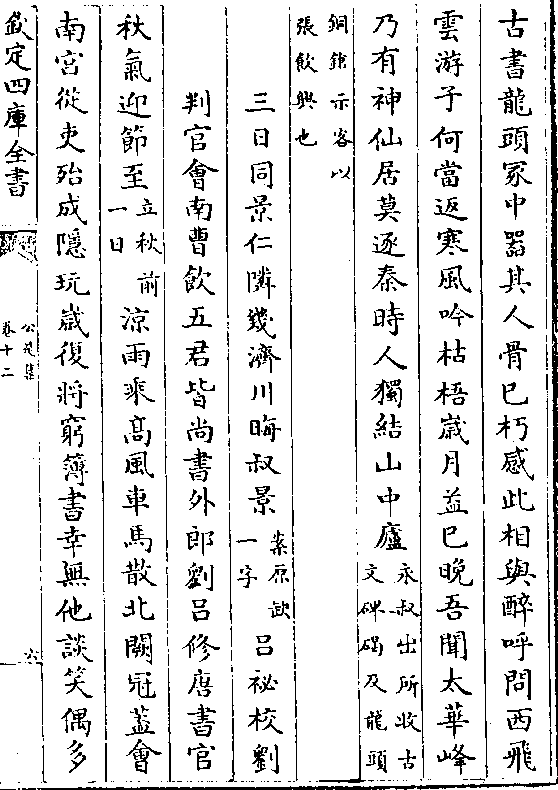 古書龍頭冢中器其人骨已朽感此相與醉呼問西飛
雲游子何當返寒風吟枯梧嵗月益已晚吾聞太華峰
乃有神仙居莫逐秦時人獨結山中廬永叔出所收古
文碑碣及龍頭
銅鎗示客以
張飲興也
三日同景仁隣幾濟川晦叔景案原缺
一字吕祕校劉
判官會南曹飲五君皆尚書外郎劉吕修唐書官
秋氣迎節至立秋前
一日涼雨乘髙風車馬散北闕冠蓋會
南宫從吏殆成隱玩嵗復將窮簿書幸無他談笑偶多
欽定四庫全書
公是集
卷十二
六